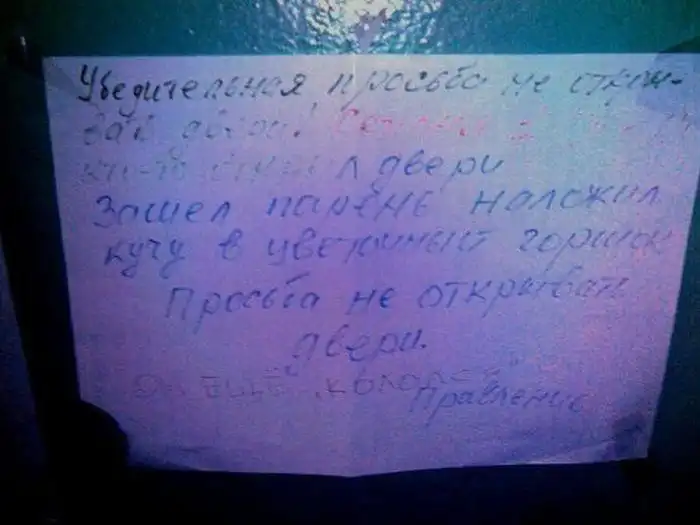 Убедительная просьба не откры-
вать двери! Сегодня
кто-то открыл двери
Зашел парень наложил
кучу в цветочный горшок
Просьба не открывать
двери.
Он ЕЩЁ "кололся"
Правление